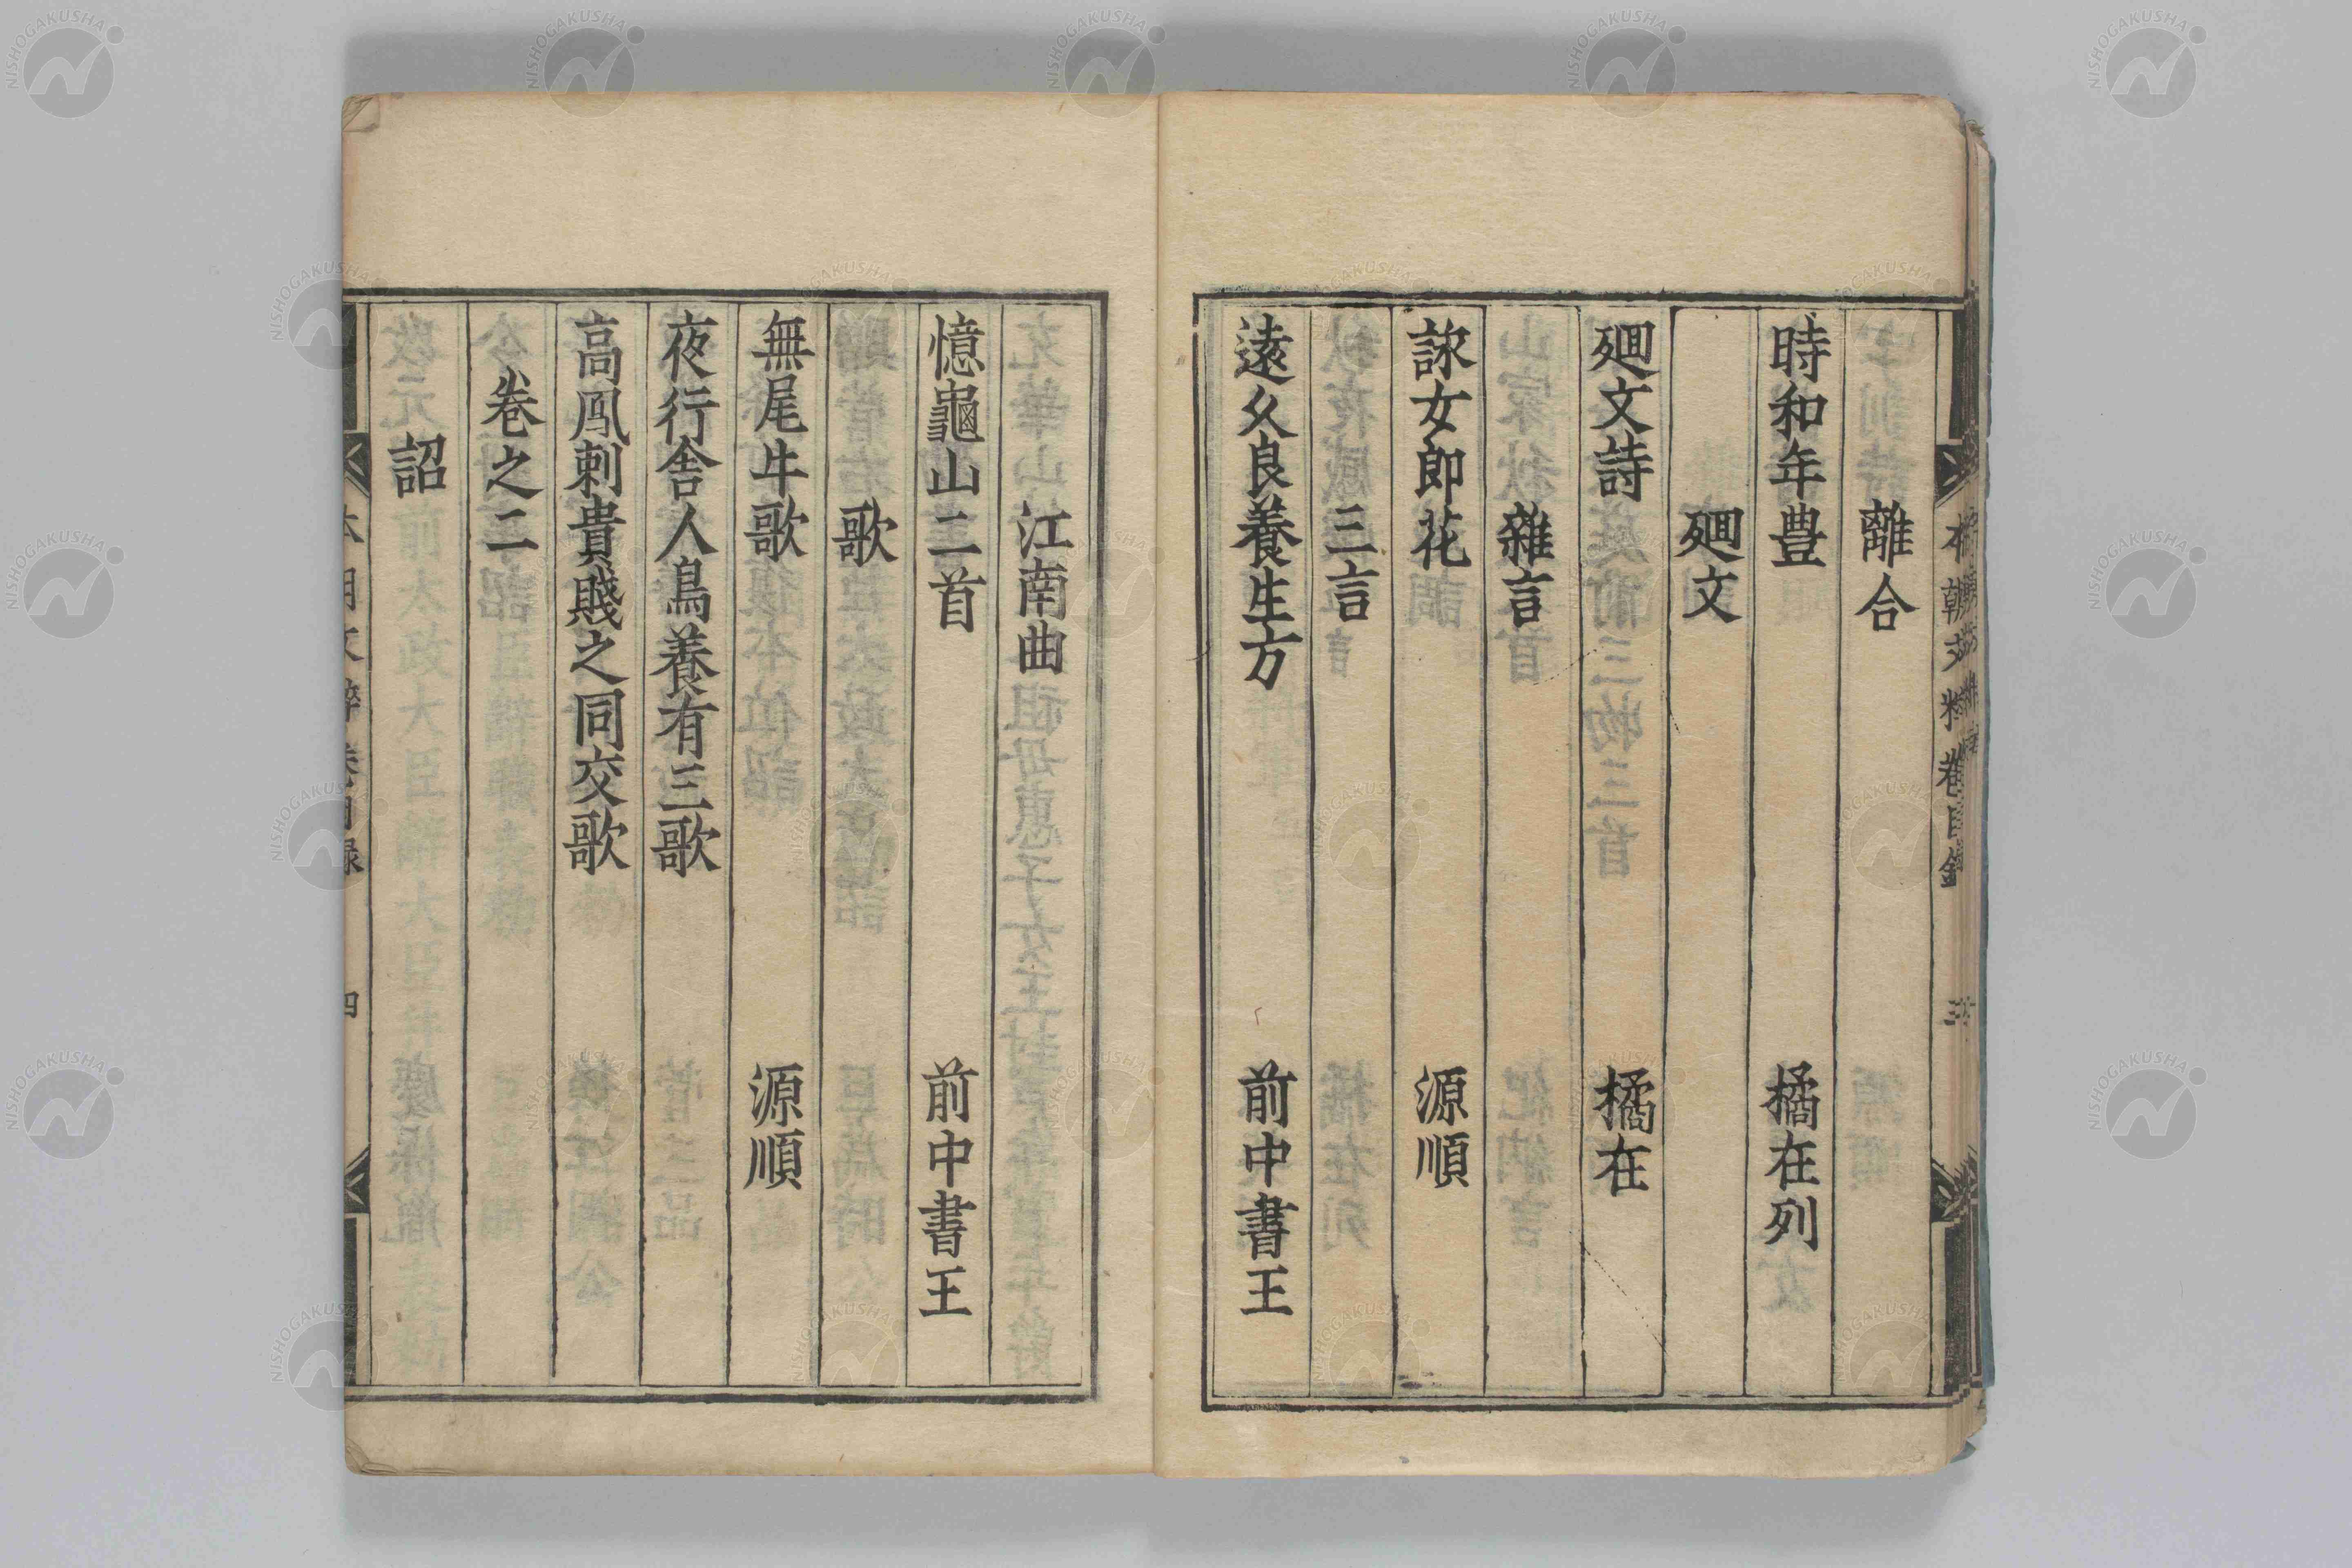 離合
時和年豊 橘在列
廻文
廻文詩 橘在
雜言
詠女郎花 源順
三言
遠久良養生方 前中書王
江南曲
憶龜山二首 前中書王
歌
無尾牛歌 源順
夜行舍人鳥養有三歌
高鳳刺貴賤之同交歌
卷之二
詔